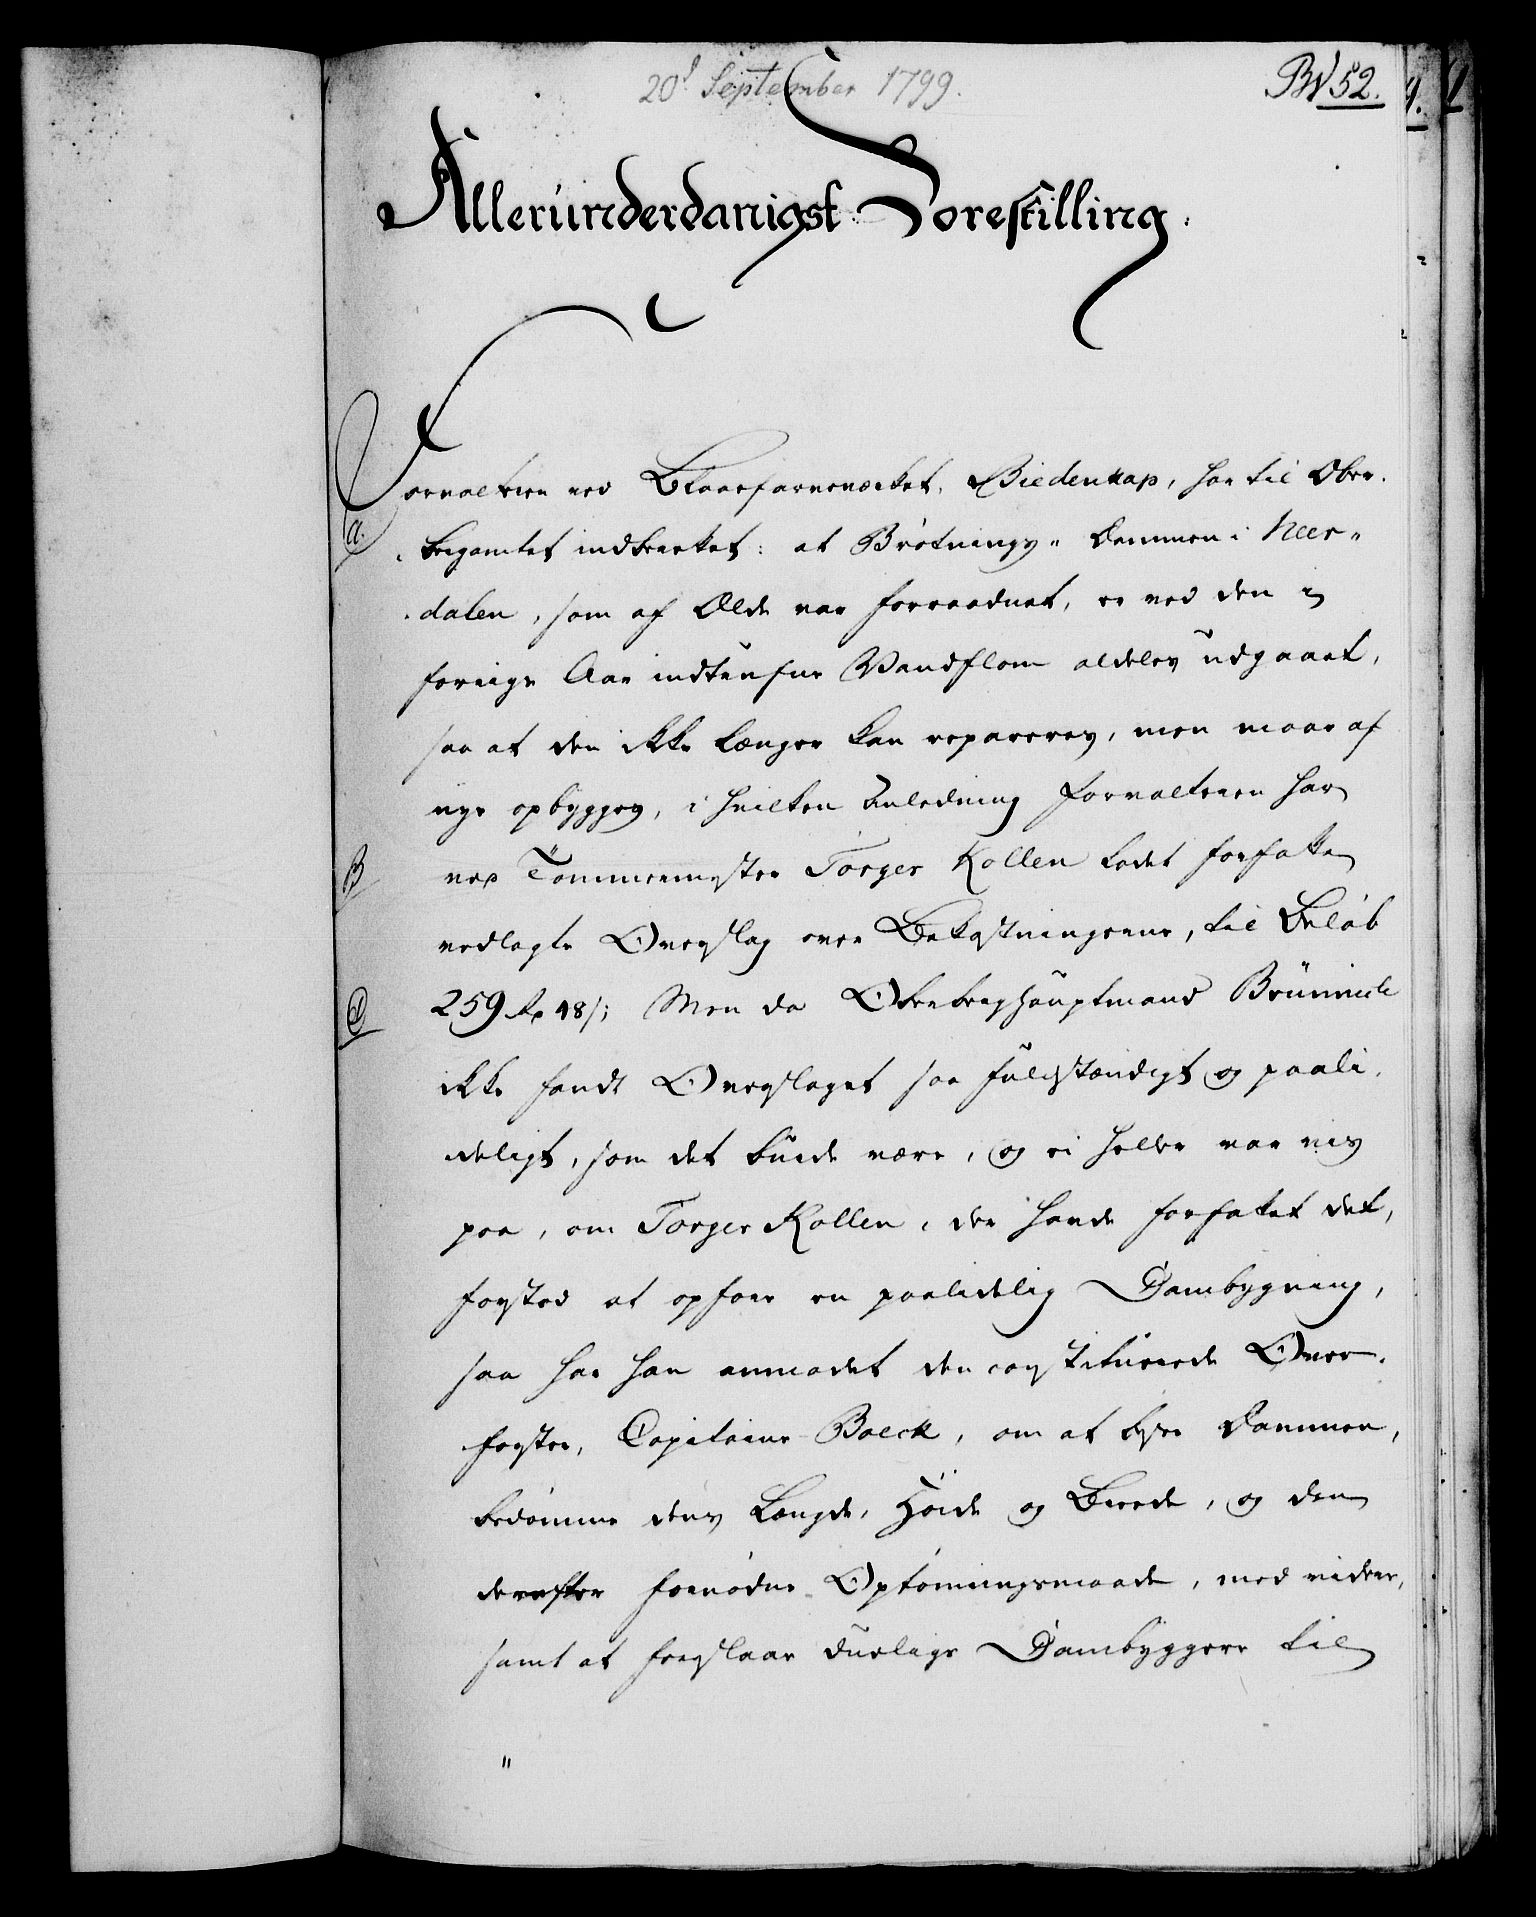 20d September 1799.
BW 52.
Allerunderdanigst Forestilling.
Forvalteren ved Blaafarveværket, Biedenkap, har til Ober-
a.
bergamtet indberettet: at Brøtnings- Dammen i Neer-
dalen, som af Ælde var forraadnet, er ved den i
forrige Aar indtrufne Vandflom aldeles udgaaet,
saa at den ikke længer kan repareres, men maae af
nye opbygges, i hvilken Anledning Forvalteren har
B
ved Tømmermester Torger Kollen ladet forfatte
vedlagte Overslag over Bekostningerne, til Beløb
259 Rd 48 s; Men da Oberberghauptmand Brünnich
ikke fandt Overslaget saa fuldstændigt og paali-
deligt, som det burde være, og ei heller var vis
paa, om Torger Kollen, der havde forfattet det,
forstod at opføre en paalidelig Dambygning,
saa har han anmodet den constituerede Over-
forster, Capitaine Boeck, om at besee Dammen,
bedømme dens Længde, Høide og Brede, og den
derefter fornødne Optømringsmaade, med videre,
samt at foreslaae duelige Dambyggere til
"